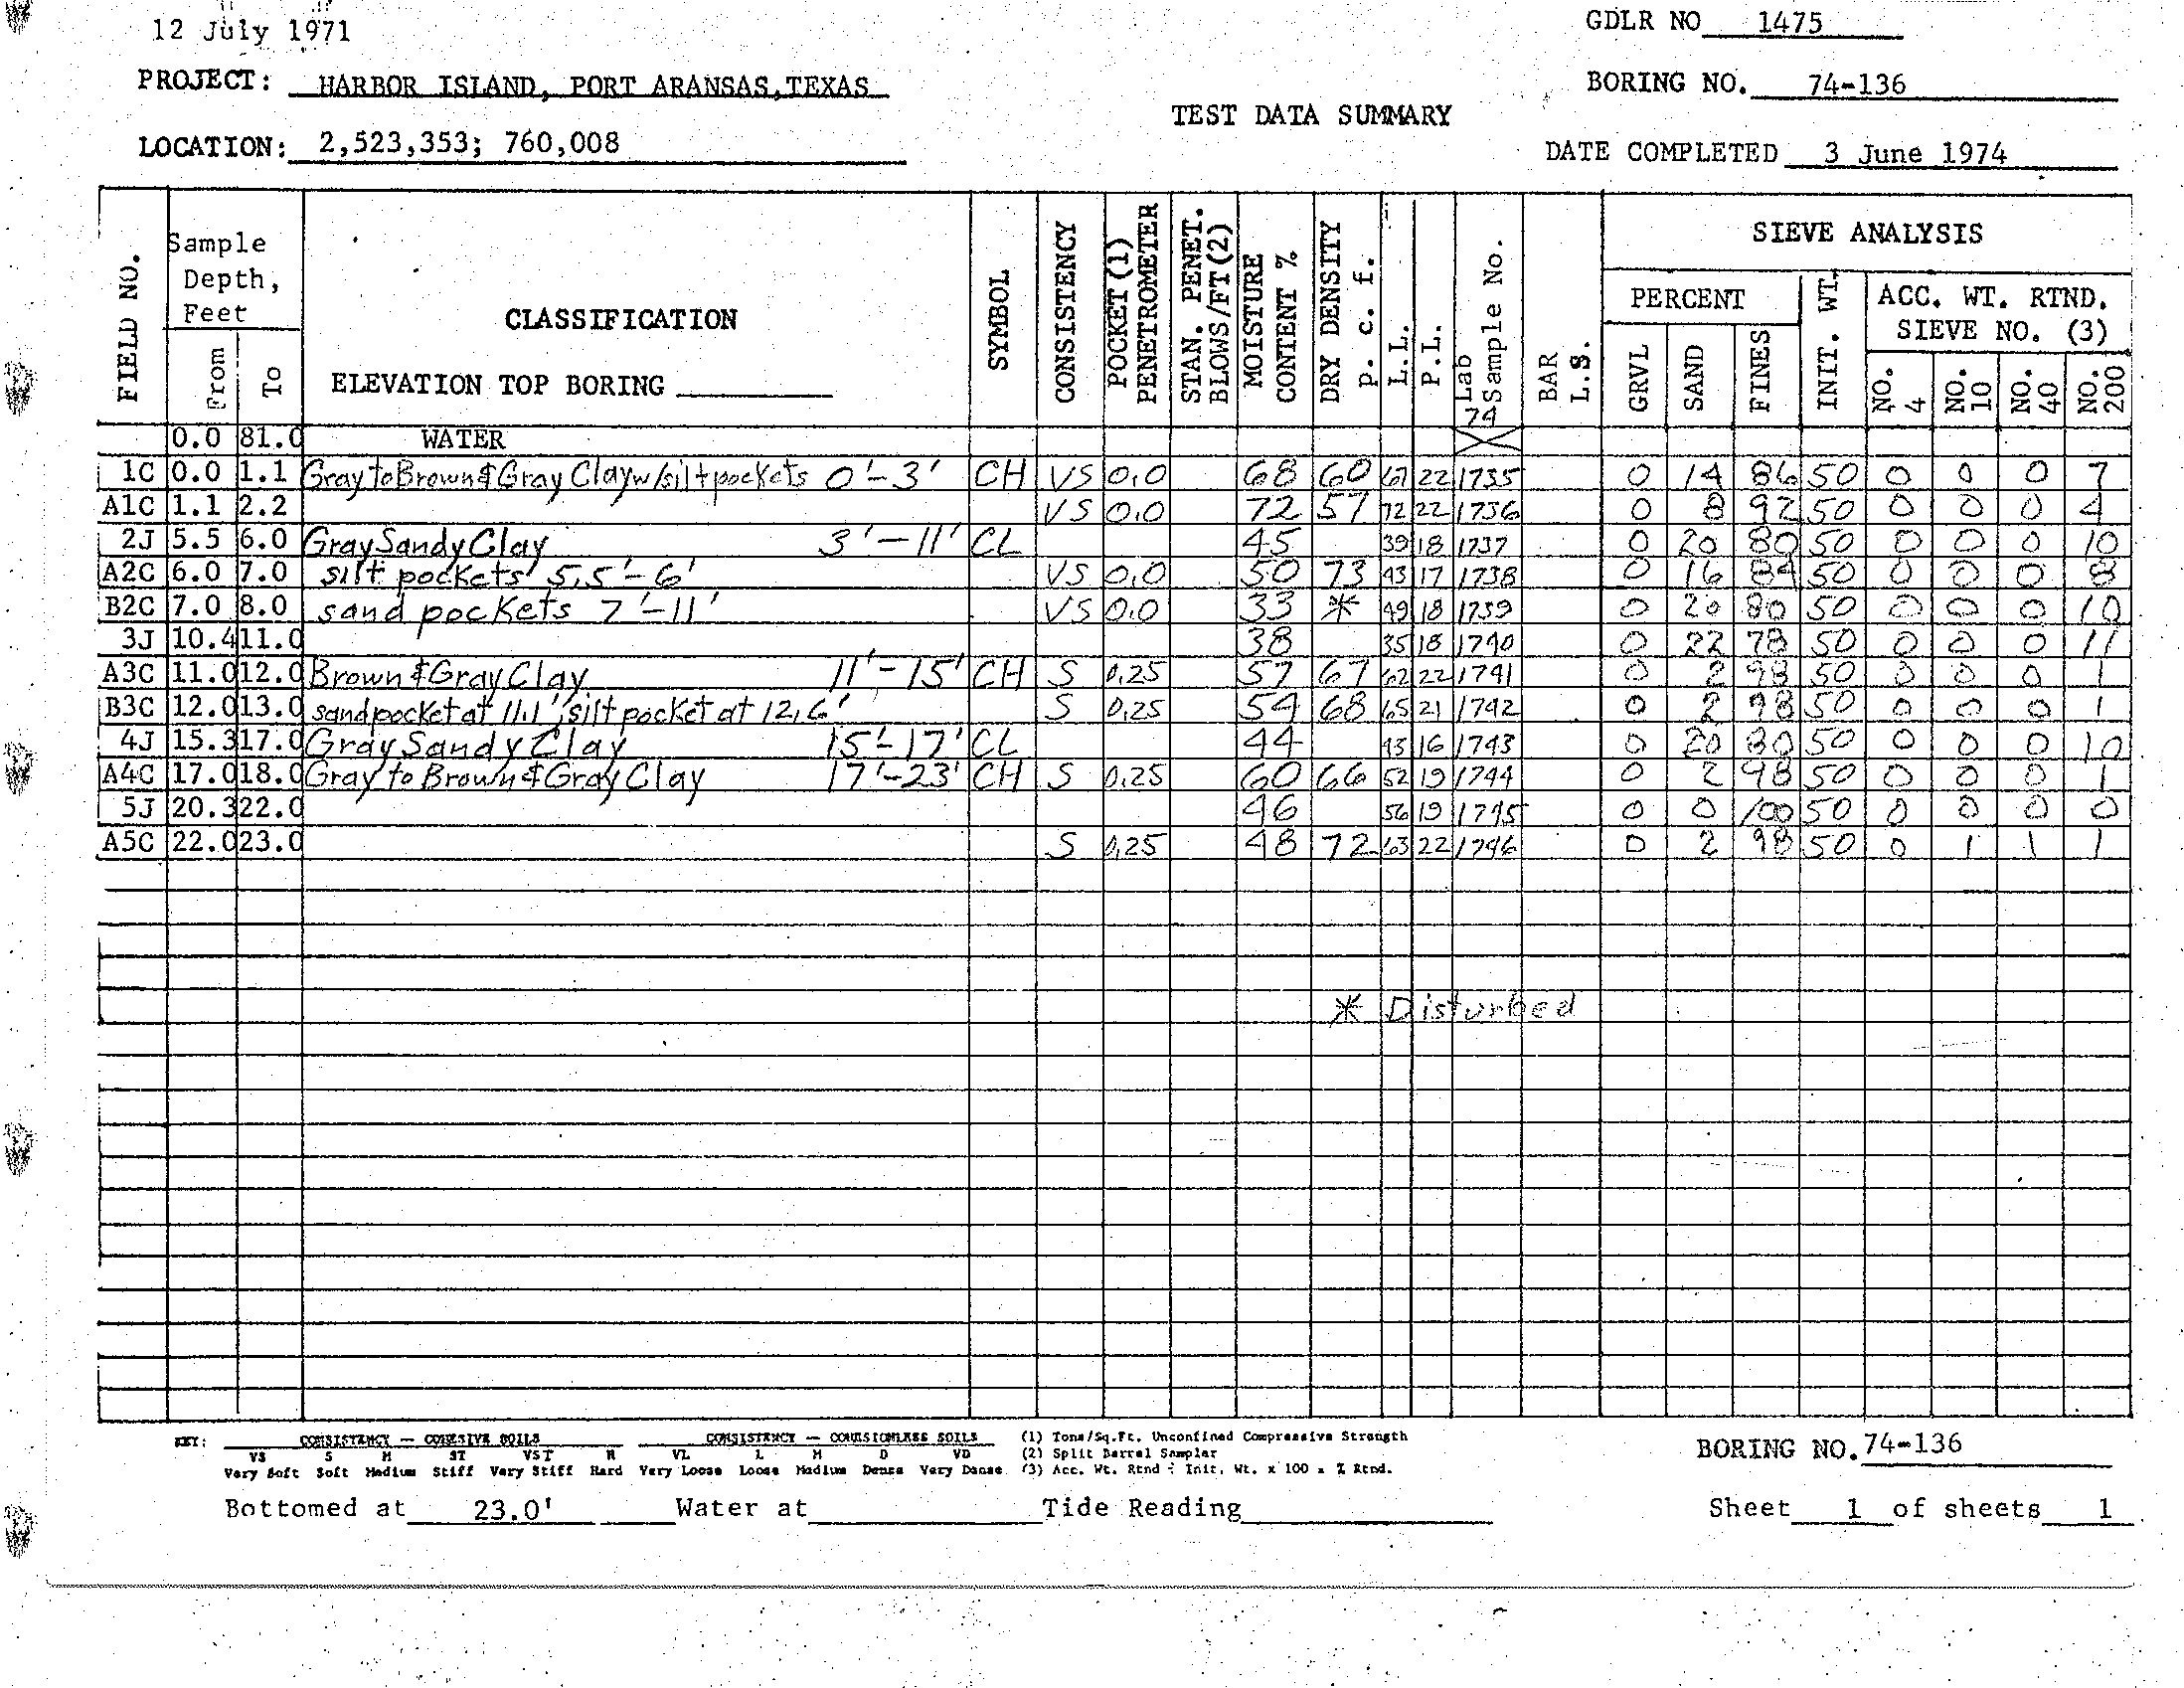 12 July 1971
GDLR NO 1475
PROJECT: HARBOR ISLAND, PORT ARANSAS, TEXAS
BORING NO. 74-136
TEST DATA SUMMARY
LOCATION: 2,523,353; 760,008
DATE COMPLETED 3 June 1974
FIELD NO.
Sample Depth, Feet
From
To
CLASSIFICATION
ELEVATION TOP BORING
SYMBOL
CONSISTENCY
POCKET (1) PENETROMETER
STAN. PENET. BLOWS/FT (2)
MOISTURE CONTENT %
DRY DENSITY p. c. f.
L.L.
P.L.
Lab Sample No.
74
BAR L.S.
SIEVE ANALYSIS
PERCENT
GRVL
SAND
FINES
INIT. WT.
ACC. WT. RTND. SIEVE NO. (3)
NO. 4
NO. 10
NO. 40
NO. 200
0.0 81.0 WATER
1C 0.0 1.1 Gray to Brown & Gray Clay w/silt pockets 0'-3' CH VS 0.0 68 60 67 22 1735 0 14 86 50 0 0 0 7
A1C 1.1 2.2 VS 0.0 72 57 72 22 1736 0 8 92 50 0 0 0 4
2J 5.5 6.0 Gray Sandy Clay 3'-11' CL 45 39 18 1737 0 20 80 50 0 0 0 10
A2C 6.0 7.0 silt pockets 5.5'-6' VS 0.0 50 73 43 17 1738 0 16 84 50 0 0 0 8
B2C 7.0 8.0 sand pockets 7'-11' VS 0.0 33 * 49 18 1739 0 20 80 50 0 0 0 10
3J 10.4 11.0 38 35 18 1740 0 22 78 50 0 0 0 11
A3C 11.0 12.0 Brown & Gray Clay 11'-15' CH S 0.25 57 67 62 22 1741 0 2 98 50 0 0 0 1
B3C 12.0 13.0 sand pocket at 11.1', silt pocket at 12.6' S 0.25 54 68 65 21 1742 0 2 98 50 0 0 0 1
4J 15.3 17.0 Gray Sandy Clay 15'-17' CL 44 43 16 1743 0 20 80 50 0 0 0 10
A4C 17.0 18.0 Gray to Brown & Gray Clay 17'-23' CH S 0.25 60 66 52 19 1744 0 2 98 50 0 0 0 1
5J 20.3 22.0 46 56 19 1745 0 0 100 50 0 0 0 0
A5C 22.0 23.0 S 0.25 48 72 63 22 1746 0 2 98 50 0 1 1 1
* Disturbed
KEY: CONSISTENCY — COHESIVE SOILS CONSISTENCY — COHESIONLESS SOILS (1) Tons/Sq.Ft. Unconfined Compressive Strength
VS S M ST VST H VL L M D VD (2) Split Barrel Sampler
Very Soft Soft Medium Stiff Very Stiff Hard Very Loose Loose Medium Dense Very Dense (3) Acc. Wt. Rtnd ÷ Init. Wt. x 100 = % Rtnd.
BORING NO. 74-136
Bottomed at 23.0' Water at Tide Reading Sheet 1 of sheets 1